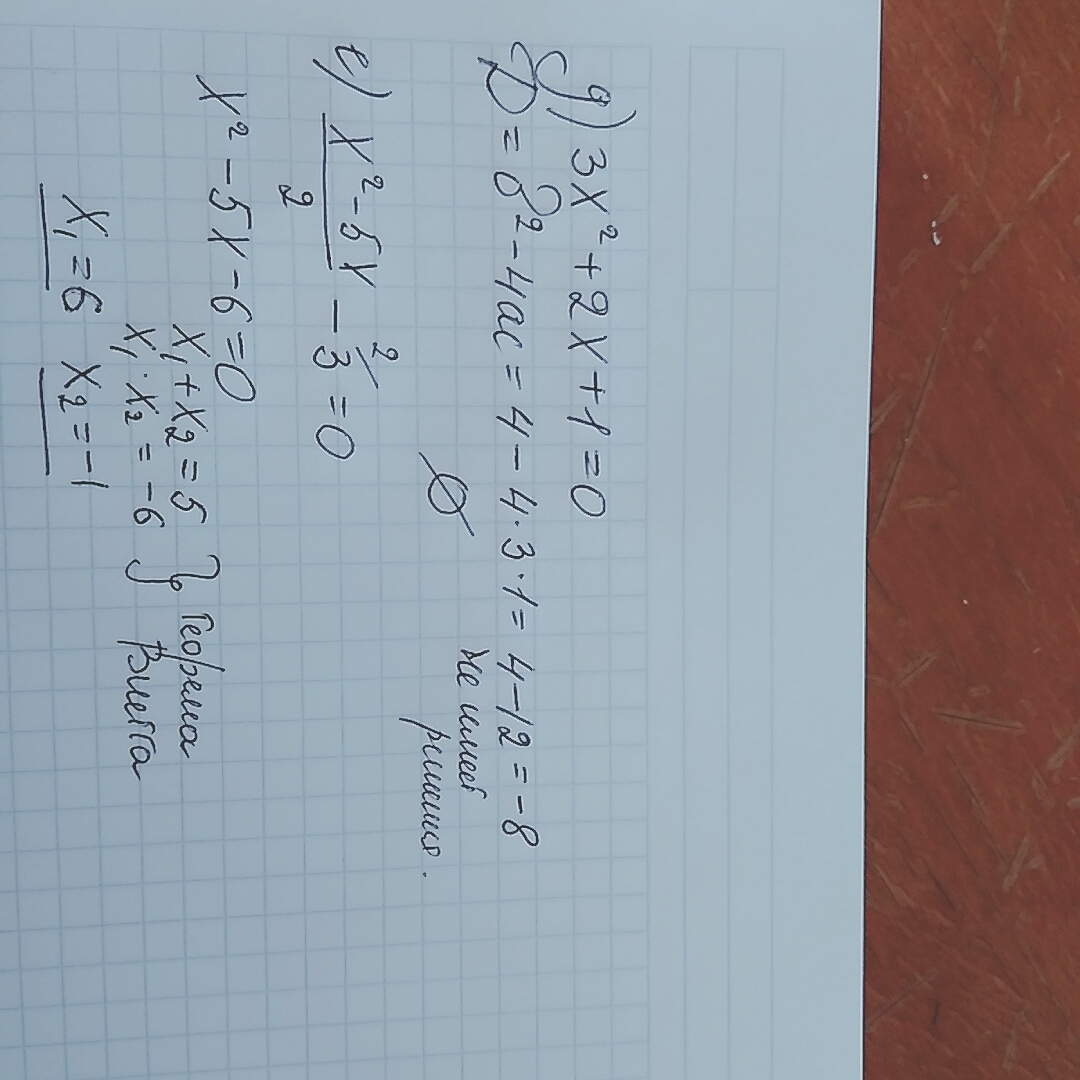 д) 3x² + 2x + 1 = 0
D = b² - 4ac = 4 - 4·3·1 = 4 - 12 = -8
∅ не имеет
решения.
е) (x² - 5x)/2 - 3^{/2} = 0
x² - 5x - 6 = 0
x₁ + x₂ = 5 } Теорема
x₁ · x₂ = -6 Виета
x₁ = 6 x₂ = -1